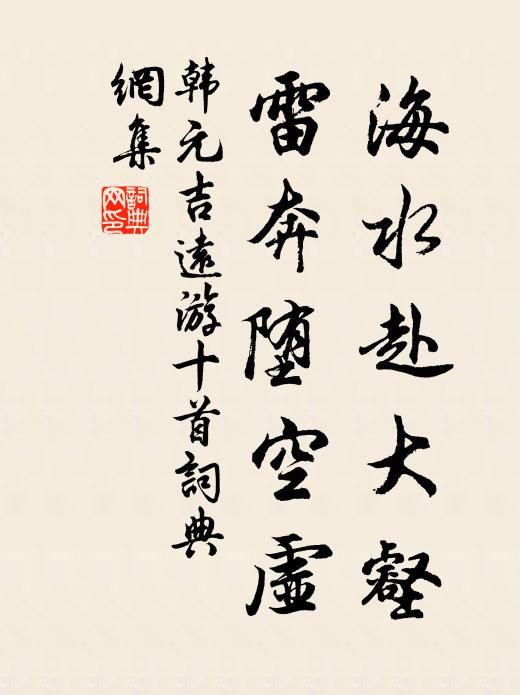 海水赴大壑
雷奔堕空虛
韩元吉遠游十首詞典
網集
詞典
网印